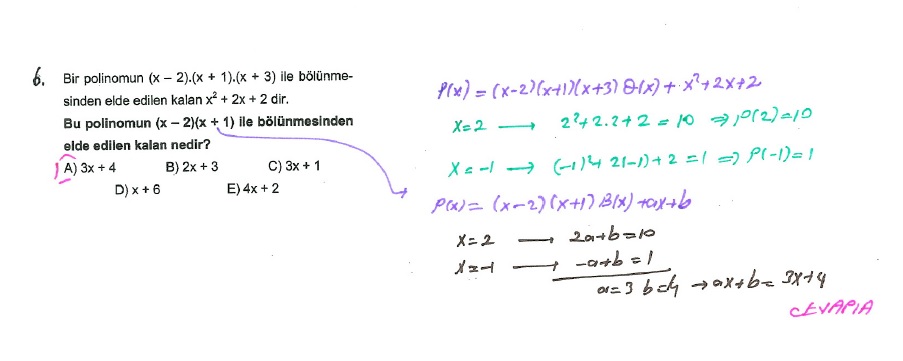 6. Bir polinomun (x – 2).(x + 1).(x + 3) ile bölünme-
sinden elde edilen kalan x² + 2x + 2 dir.
Bu polinomun (x – 2)(x + 1) ile bölünmesinden
elde edilen kalan nedir?
A) 3x + 4 B) 2x + 3 C) 3x + 1
D) x + 6 E) 4x + 2
P(x) = (x-2)(x+1)(x+3) Q(x) + x²+2x+2
x=2 → 2²+2.2+2 = 10 ⇒ P(2)=10
x=-1 → (-1)²+2(-1)+2 = 1 ⇒ P(-1)=1
P(x) = (x-2)(x+1) B(x) +ax+b
x=2 → 2a+b=10
x=-1 → -a+b=1
a=3 b=4 → ax+b= 3x+4
CEVAP:A